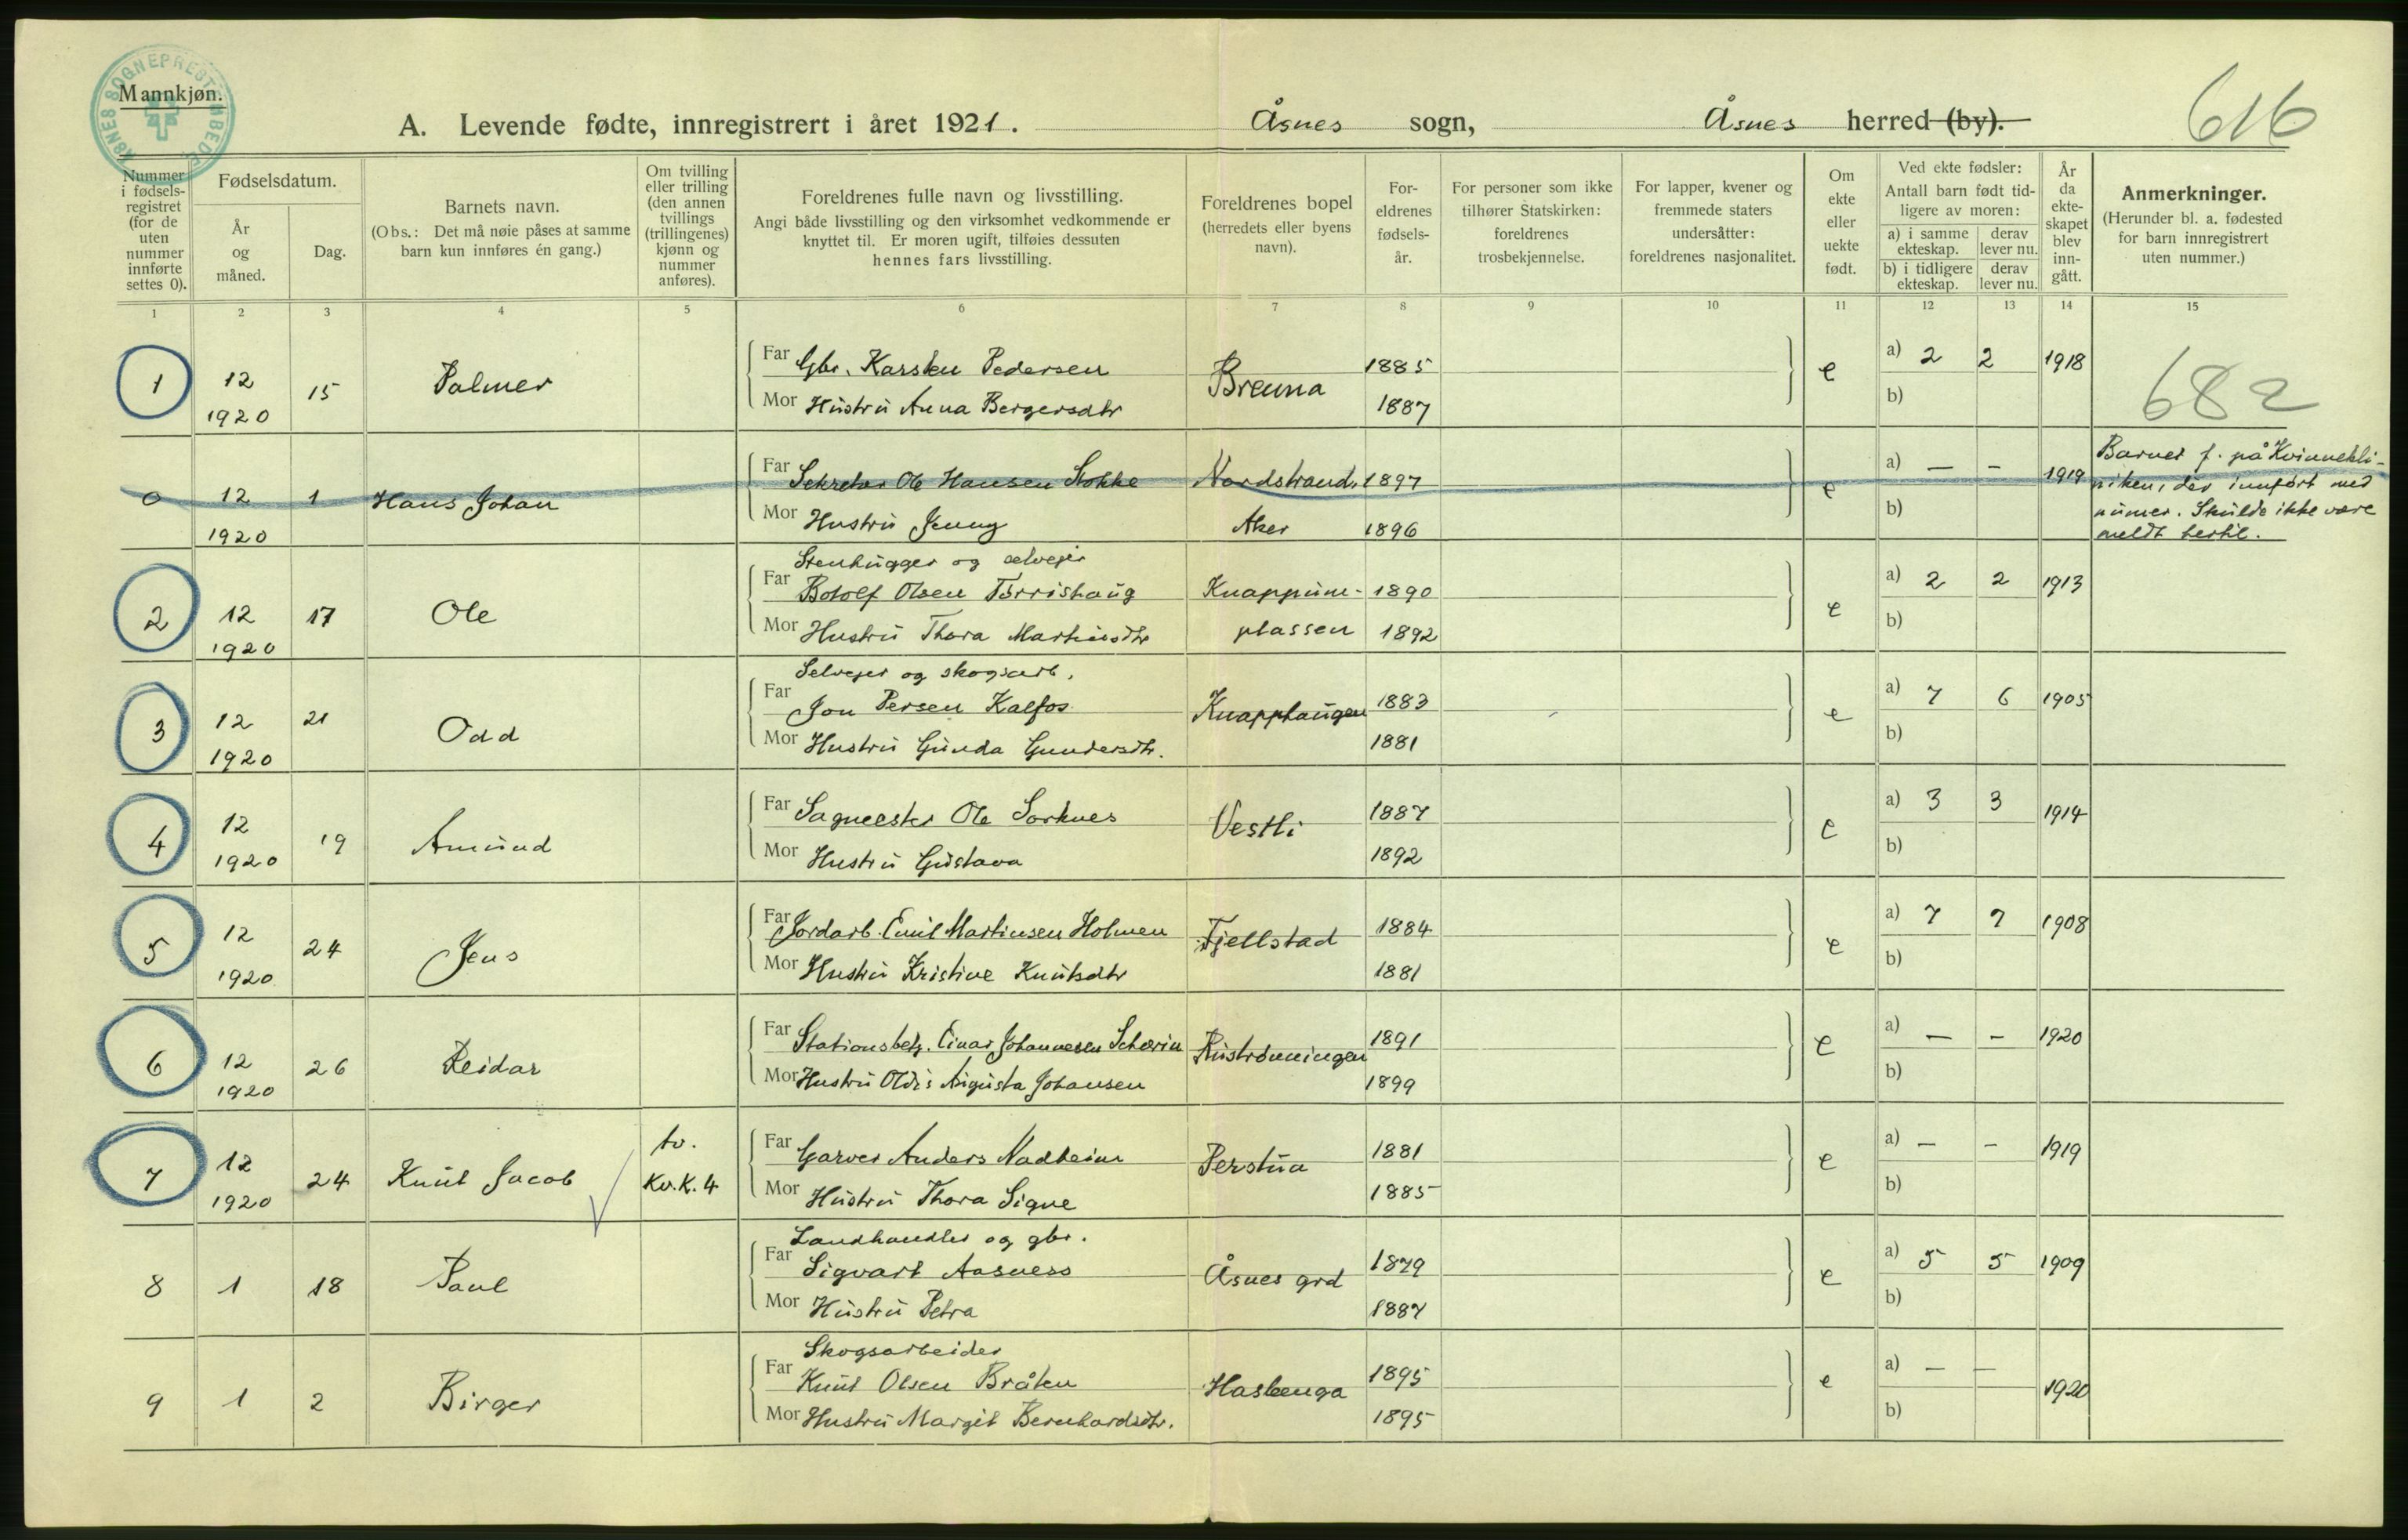 ÅSNES SOGNEPRESTEMBEDE
Mannkjøn.
A. Levende fødte, innregistrert i året 1921. Åsnes sogn, Åsnes herred (by).
616
Nummer i fødselsregistret (for de uten nummer innførte settes 0).
Fødselsdatum.
År og måned.
Dag.
Barnets navn.
(Obs.: Det må nøie påses at samme barn kun innføres én gang.)
Om tvilling eller trilling (den annen tvillings (trillingenes) kjønn og nummer anføres).
Foreldrenes fulle navn og livsstilling.
Angi både livsstilling og den virksomhet vedkommende er knyttet til. Er moren ugift, tilføies dessuten hennes fars livsstilling.
Foreldrenes bopel (herredets eller byens navn).
Foreldrenes fødselsår.
For personer som ikke tilhører Statskirken: foreldrenes trosbekjennelse.
For lapper, kvener og fremmede staters undersåtter: foreldrenes nasjonalitet.
Om ekte eller uekte født.
Ved ekte fødsler: Antall barn født tidligere av moren:
a) i samme ekteskap. derav lever nu.
b) i tidligere ekteskap. derav lever nu.
År da ekteskapet blev inngått.
Anmerkninger.
(Herunder bl. a. fødested for barn innregistrert uten nummer.)
1 2 3 4 5 6 7 8 9 10 11 12 13 14 15
1 12 1920 15 Palmer
Far Gbr. Karsten Pedersen Brenna 1885 e a) 2 2 1918
Mor Hustru Anna Bergersdtr 1887 b)
682
0 12 1920 1 Hans Johan
Far Sekretær Ole Hansen Stokke Nordstrand, 1897 e a) — — 1919
Mor Hustru Jenny Aker 1896 b)
Barnet f. på Kvinnekli-
niken, der innført med
numer. Skulde ikke være
meldt hertil.
2 12 1920 17 Ole
Stenhugger og selveier
Far Botolf Olsen Torrishaug Knappum- 1890 e a) 2 2 1913
Mor Hustru Thora Martinsdtr plassen 1892 b)
3 12 1920 21 Odd
Selveier og skogsarb.
Far Jon Persen Kalfos Knapphaugen 1883 e a) 7 6 1905
Mor Hustru Gunda Gundersdtr. 1881 b)
4 12 1920 19 Amund
Far Sagmester Ole Sorknes Vestli 1887 e a) 3 3 1914
Mor Hustru Gustava 1892 b)
5 12 1920 24 Jens
Far Jordarb. Emil Martinsen Holmen Fjellstad 1884 e a) 7 7 1908
Mor Hustru Kristine Knutsdtr 1881 b)
6 12 1920 26 Reidar
Far Stationsbetj. Einar Johannesen 1891 e a) — — 1920
Mor Hustru Oldis Augusta Johansen 1899 b)
7 12 1920 24 Knut Jacob tv. Kv.K. 4
Far Garver Anders Nadheim Perstua 1881 e a) — — 1919
Mor Hustru Thora Signe 1885 b)
8 1 18 Paul
Landhandler og gbr.
Far Sigvart Aasness Åsnes grd 1879 e a) 5 5 1909
Mor Hustru Petra 1887 b)
9 1 2 Birger
Skogsarbeider
Far Knut Olsen Bråten Haslenga 1895 e a) — — 1920
Mor Hustru Margit Bernhardsdtr. 1895 b)